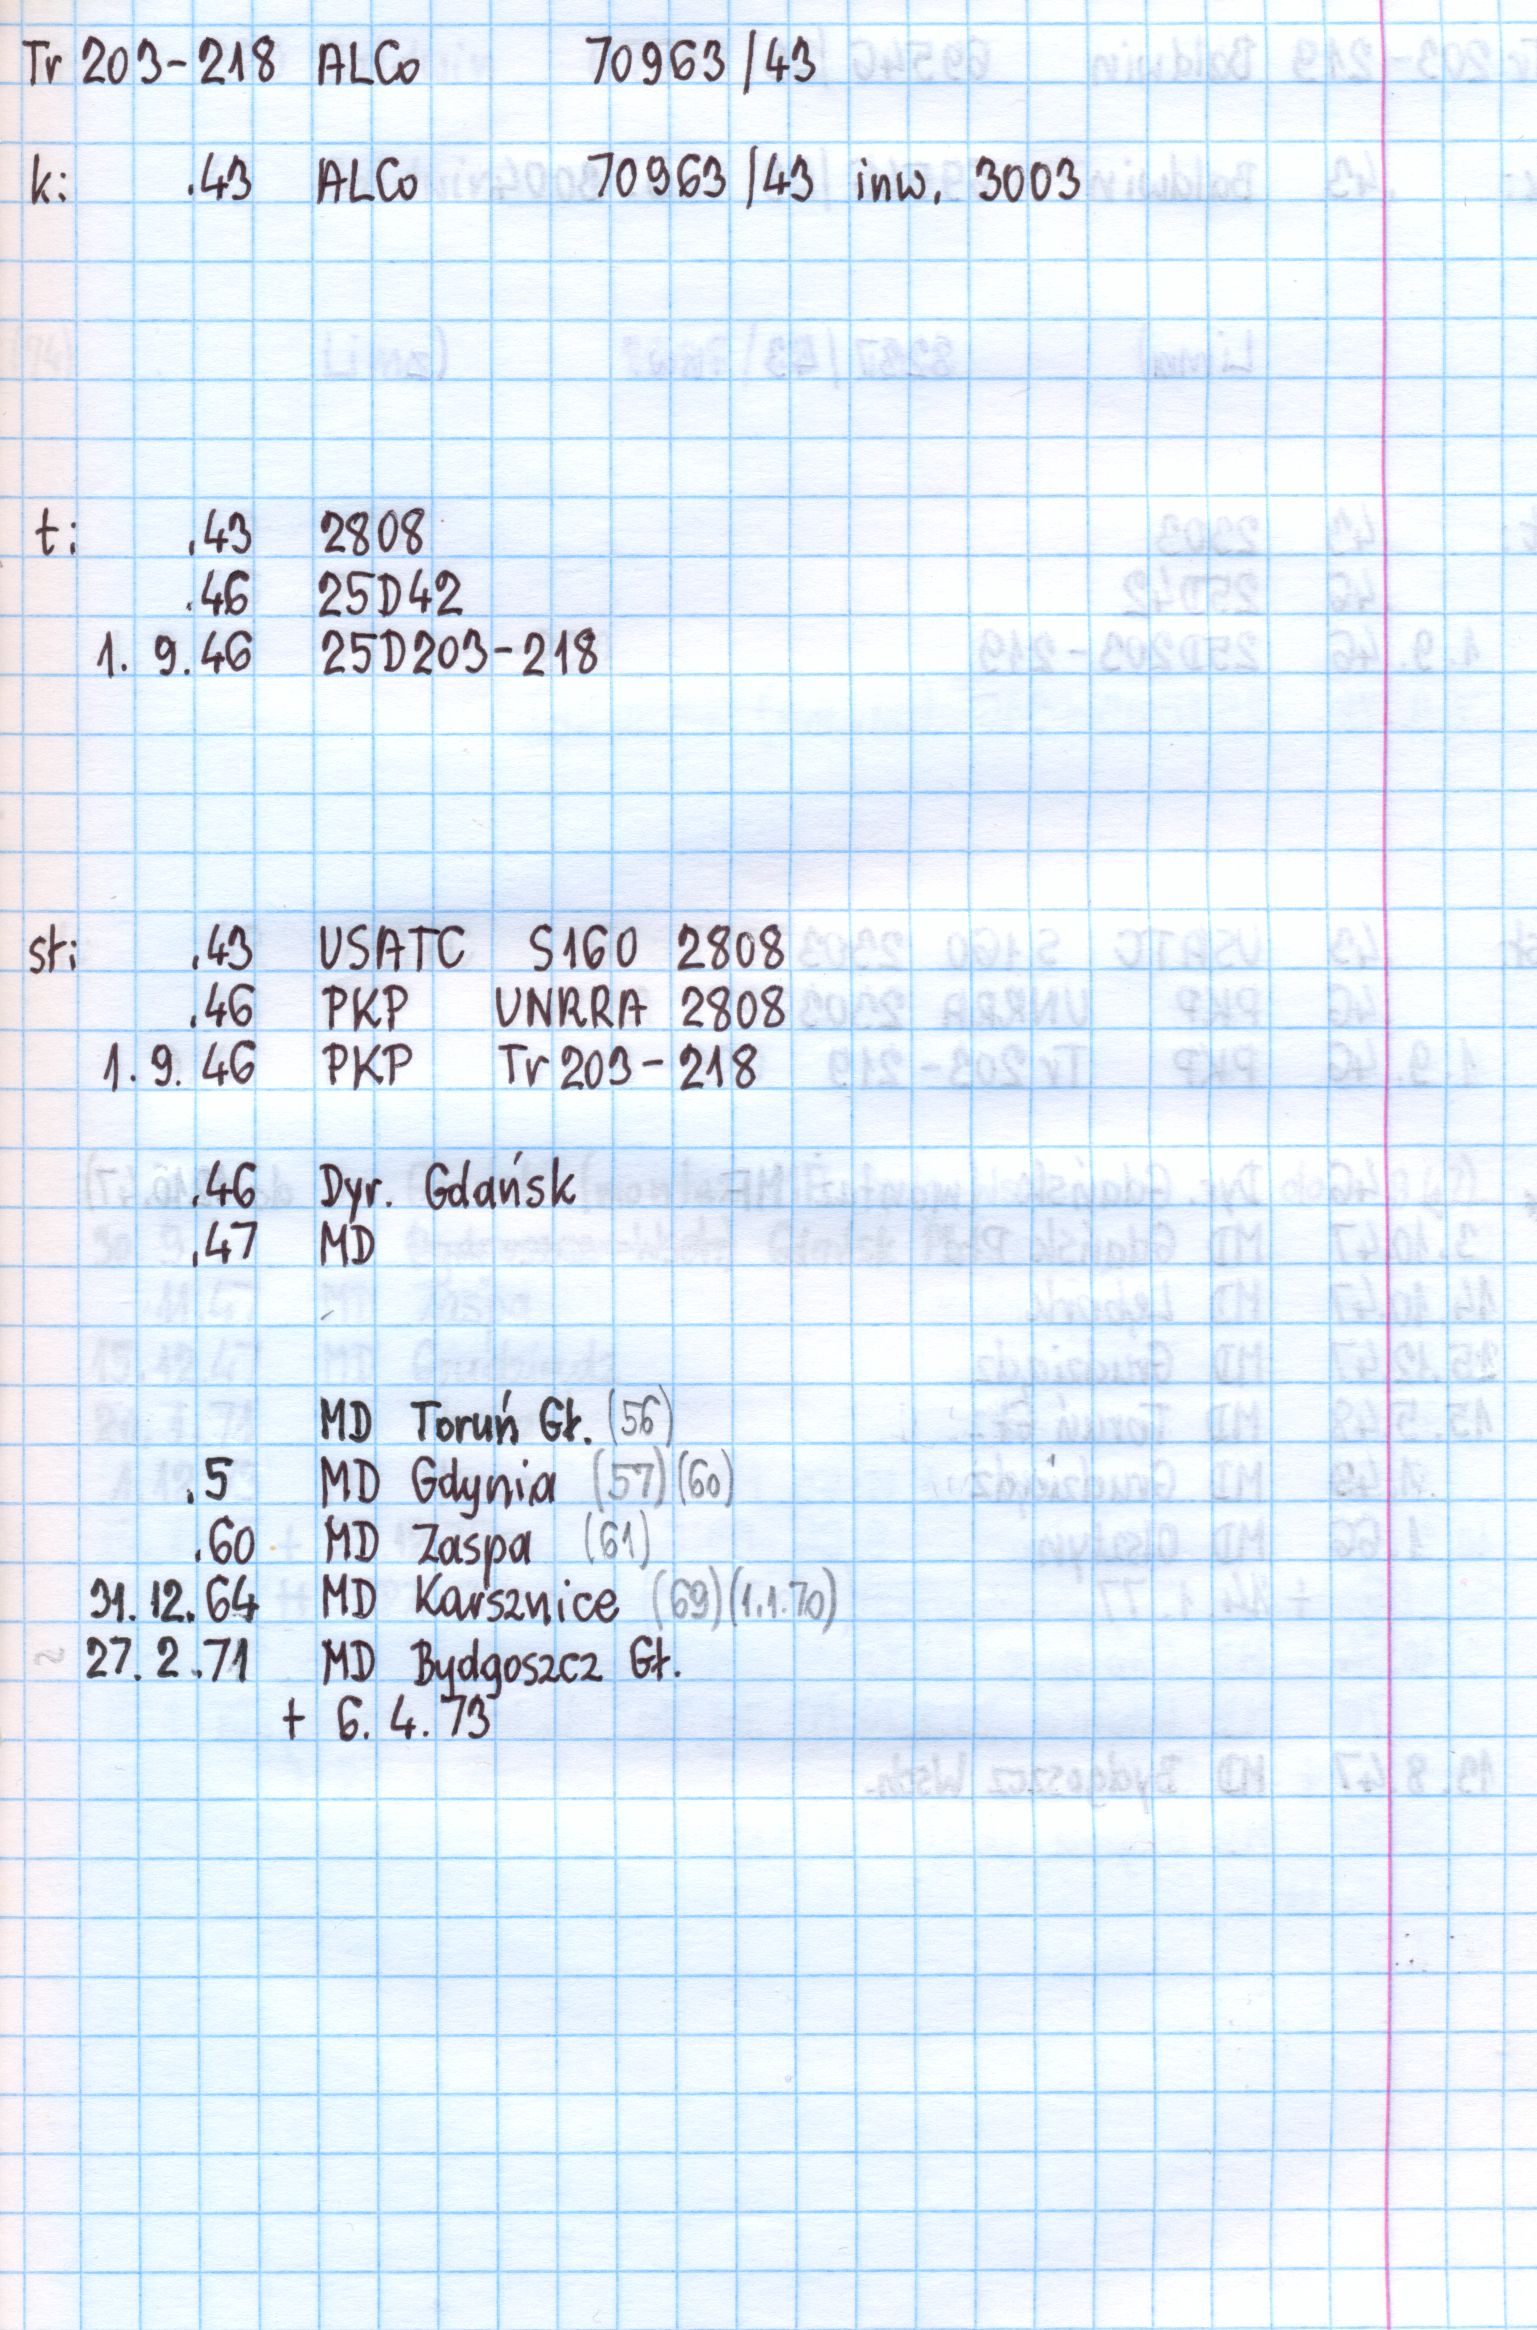 Tr 203-218 ALCo 70963/43
k: .43 ALCo 70963/43 inw. 3003
t: .43 2808
.46 25D42
1. 9.46 25D203-218
st: .43 USATC S160 2808
.46 PKP UNRRA 2808
1. 9. 46 PKP Tr 203-218
.46 Dyr. Gdańsk
.47 MD
MD Toruń Gł. (56)
.5 MD Gdynia (57)(60)
.60 MD Zaspa (61)
31. 12. 64 MD Karsznice (69)(1.1.70)
~ 27. 2.71 MD Bydgoszcz Gł.
+ 6. 4. 73